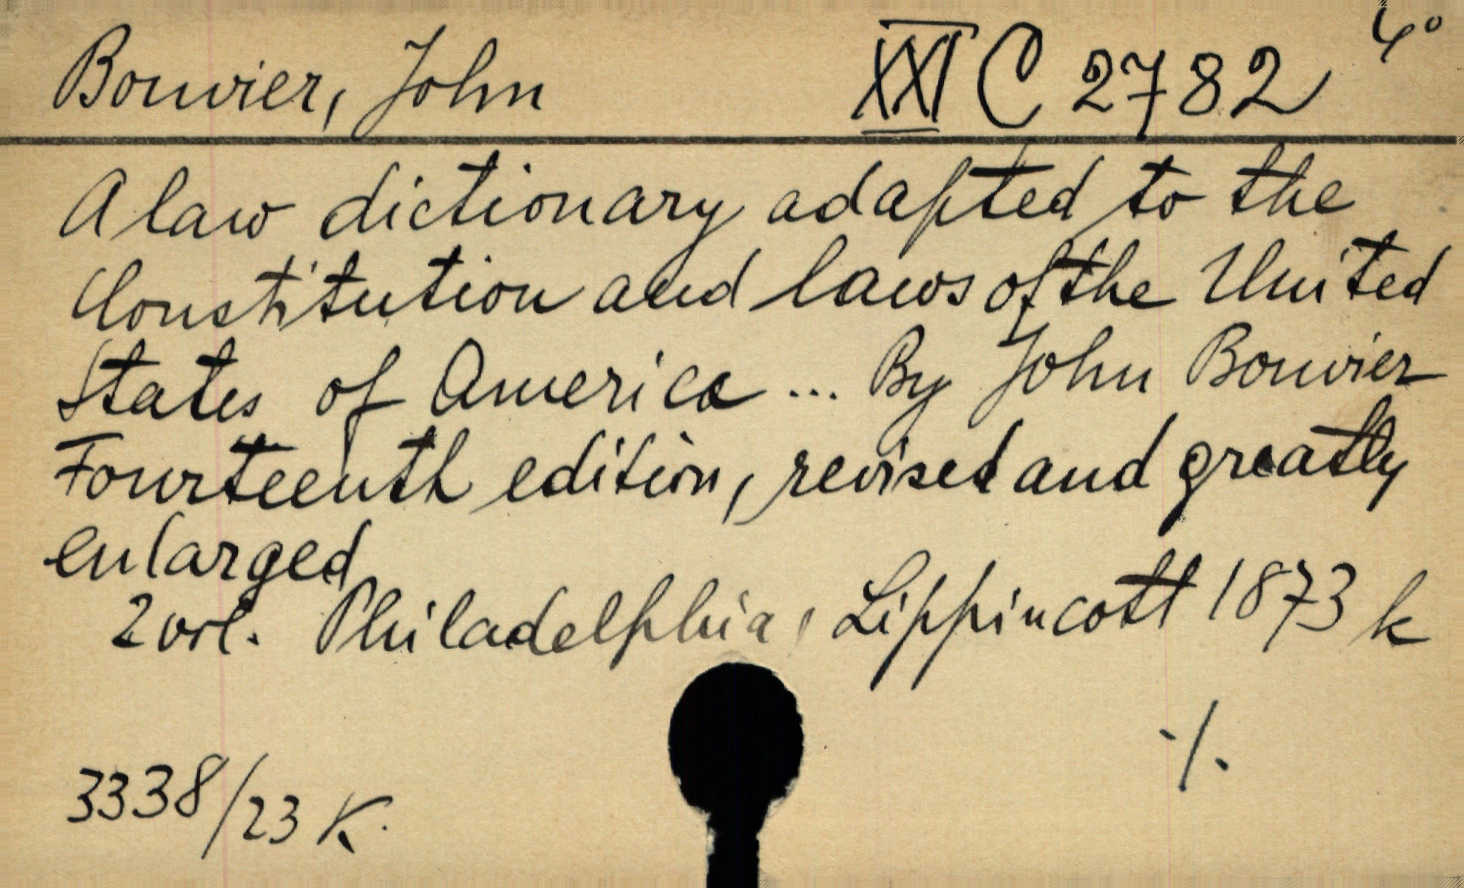 Bouvier, John XXI C 2782 4°
A law dictionary adapted to the
Constitution and laws of the United
States of America ... By John Bouvier
Fourteenth edition, revised and greatly
enlarged
2 vol. Philadelphia, Lippincott 1873 k
·/.
3338/23 K.